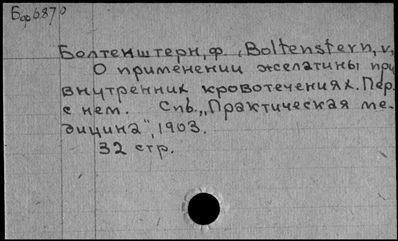 Бор 6870
Болтенштерн, ф. (Boltenstern, v,
О применении желатины при
внутренних кровотечениях. Пер.
с нем. Спб., „Практическая ме-
дицина", 1903.
32 стр.